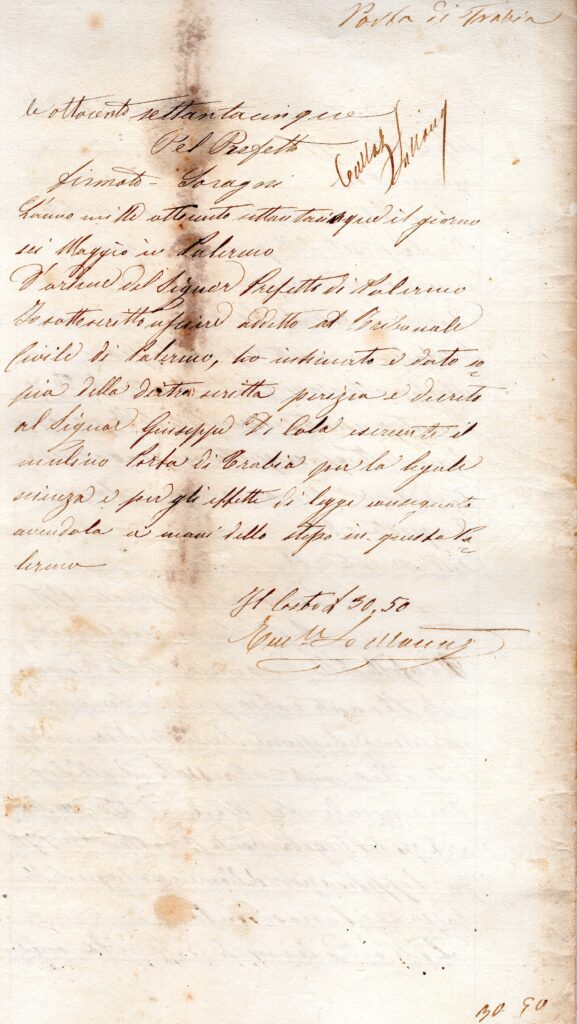 Porta di Trabia
le ottocento settantacinque
Pel Prefetto
firmato - Soragni
L'anno mille ottocento settantacinque il giorno
sei Maggio in Palermo
D'ordine del Signor Prefetto di Palermo
Io sottoscritto usciere addetto al Tribunale
Civile di Palermo, ho insinuato e dato co=
pia della dietro scritta perizia e decreto
al Signor Giuseppe Di Cola esercente il
mulino Porta di Trabia per la legale
scienza e per gli effetti di legge consegnata
avendola a mani dello stesso in questa Pa=
lermo
Il Costo £ 30,50
Lo
30 50